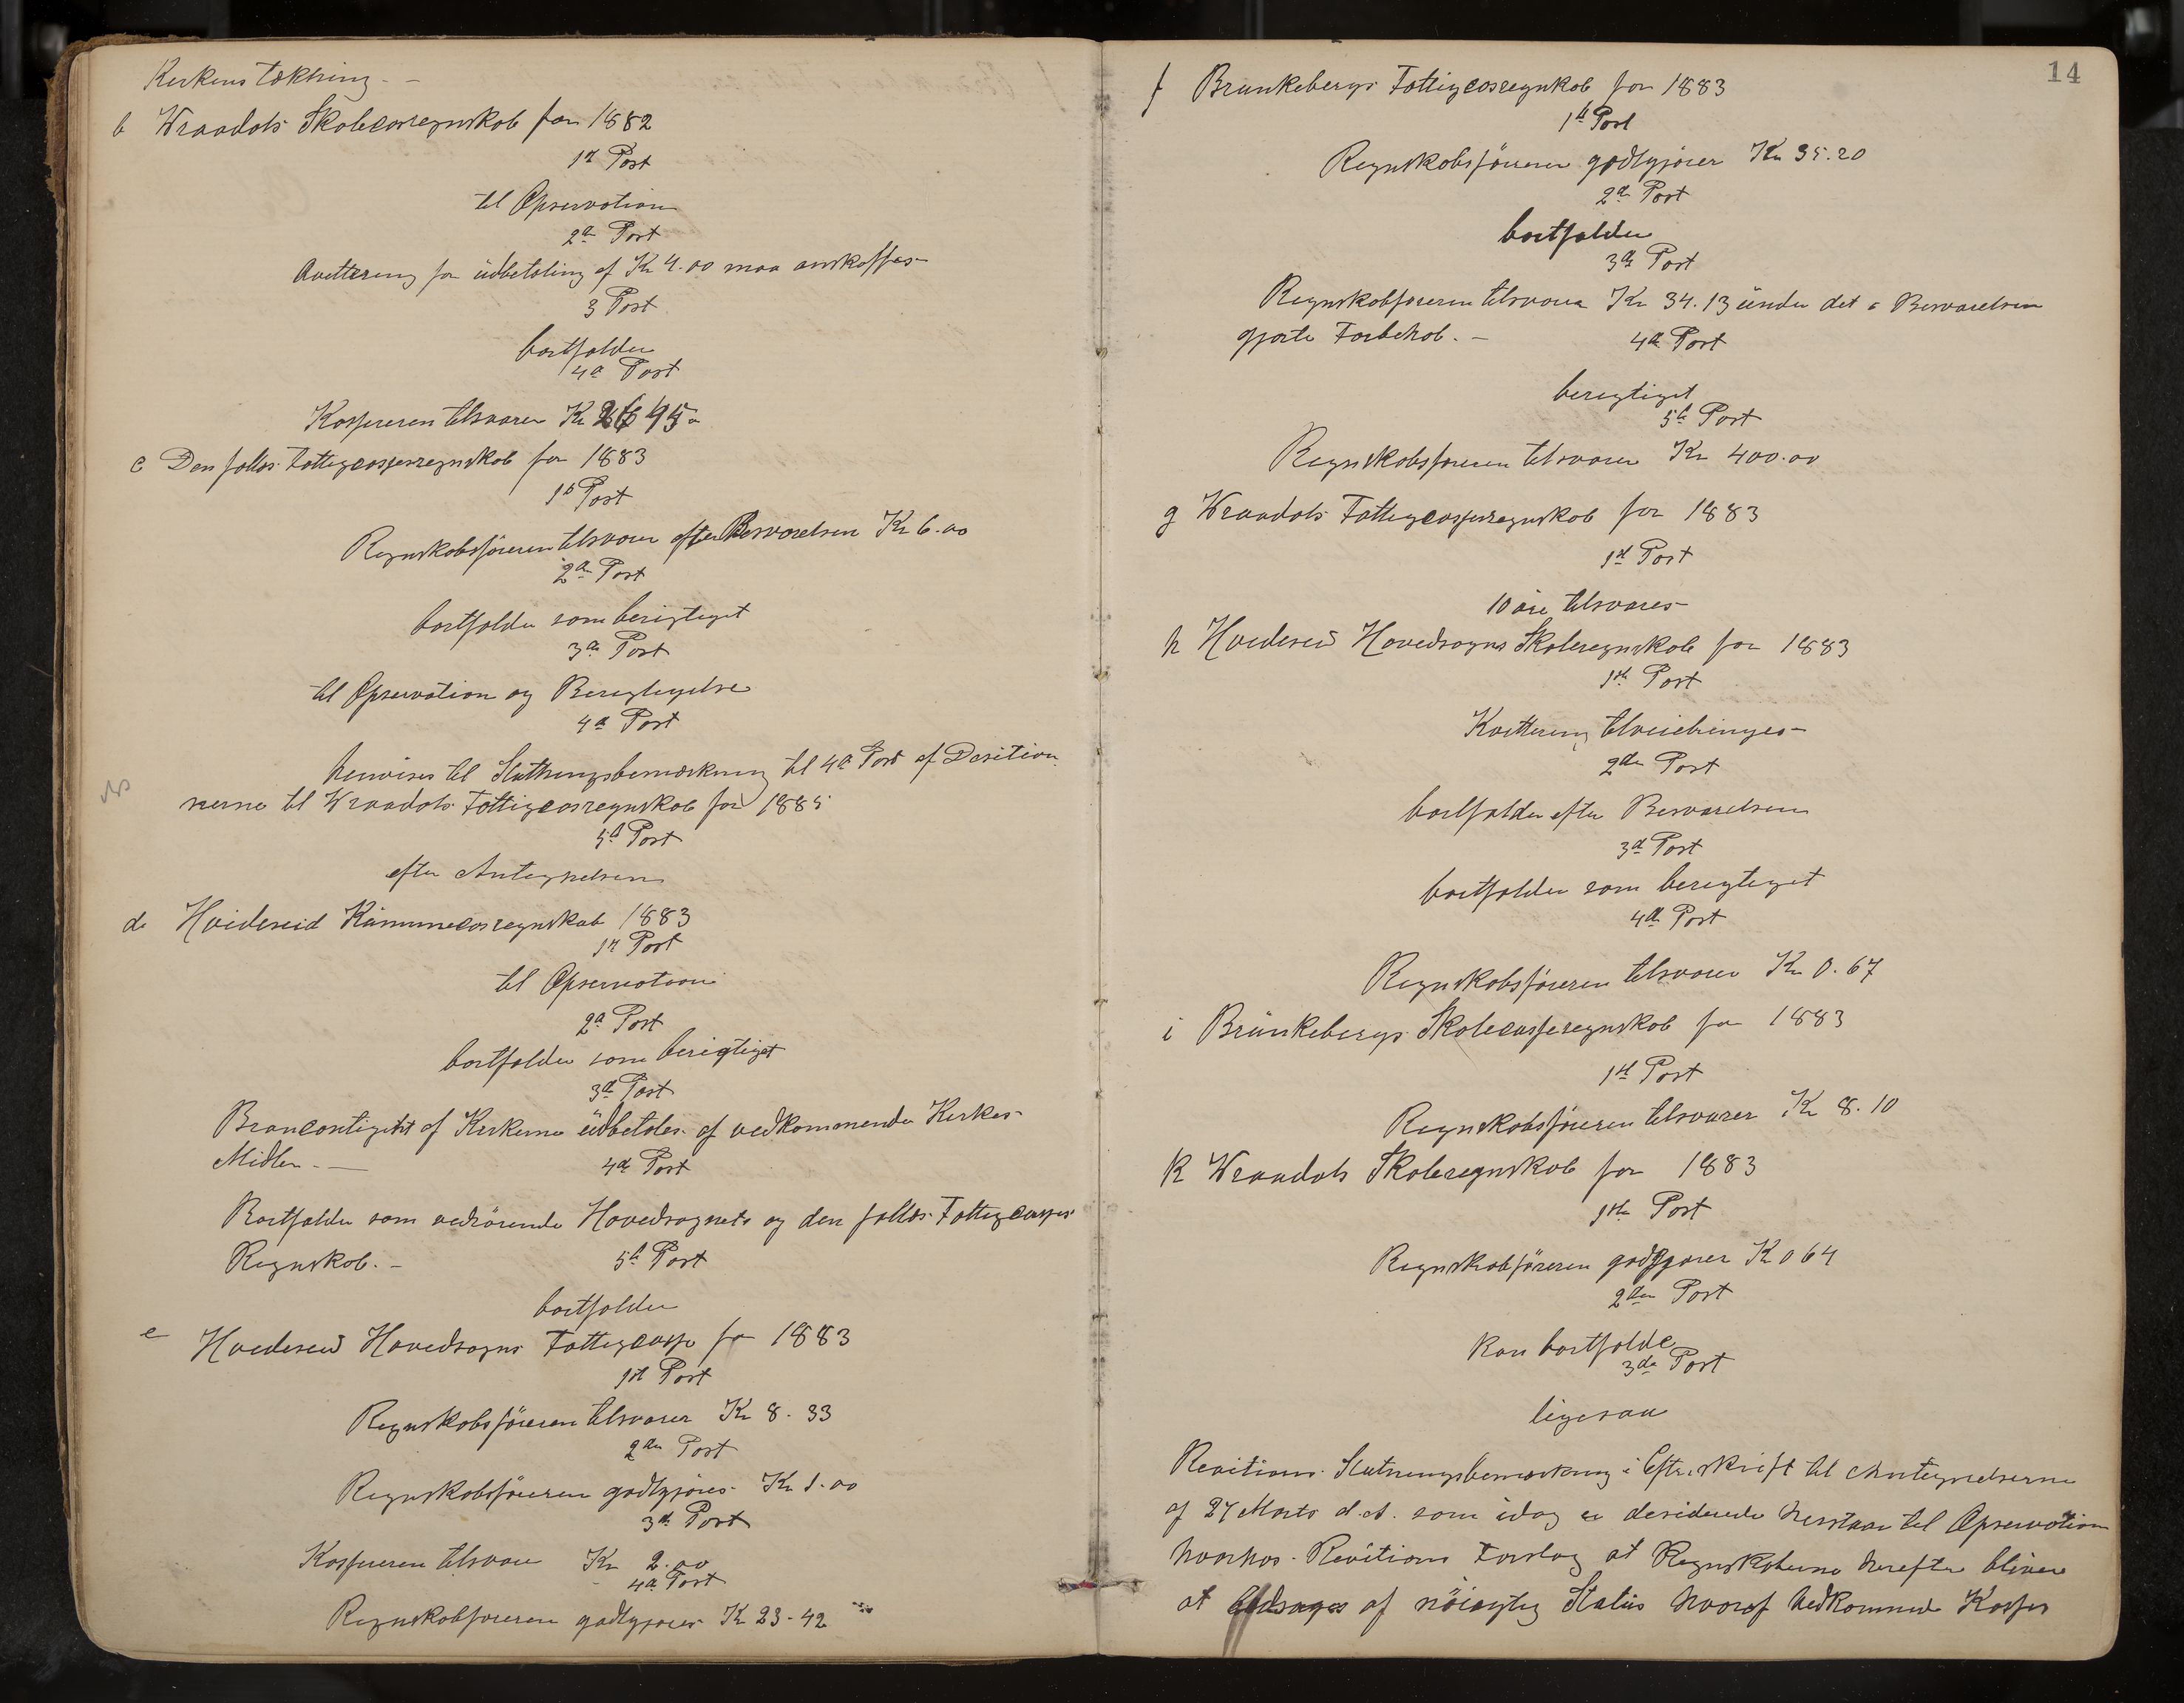 Kerkens tækning. -
b Wraadals Skolecasregnskab for 1882
1ste Post
til Opservation
2den Post
Qvittering for üdbetaling af Kr 4.00 maa anskaffes -
3 Post
bortfalder
4de Post
Kassereren tilsvarer Kr 45
c Den fælles Fattigcasseregnskab for 1883
1ste Post
Regnskabsføreren tilsvarer efter Besvarelsen Kr 6.00
2den Post
bortfalder som berigtiget
3die Post
til Opservation og Beregtigelse
4de Post
henvises til Slutningsbemærkning til 4de Post af Desition
nerne til Wraadals Fattigcasregnskab for 1885
5te Post
efter Antegnelsen
d. Hvideseid Kommunecasregnskab 1883
1ste Post
til Opservation
2den Post
bortfalder som berigtiget
3die Post
Brancontigent af Kirkerne üdbetales af vedkommende Kirkes
Midler. -
4de Post
Bortfalder som vedrørende Hovedsognets og den fælles Fattigcasses
Regnskab. -
5te Post
bortfalder
e Hvideseid Hovedsogns Fattigcasse for 1883
1ste Post
Regnskabsføreren tilsvarer Kr 8.33
2den Post
Regnskabsføreren godtgjøres Kr 1.00
3die Post
Kassereren tilsvarer Kr 2.00
4de Post
Regnskabsføreren godtgjøres Kr 23-42
14
f Brunkebergs Fattigcasregnskab for 1883
1ste Post
Regnskabsføreren godtgjører Kr 35.20
2den Post
bortfalder
3die Post
Regnskabsføreren tilsvarer Kr 34.13 ünder det i Besvarelsen
gjorte Forbehol. -
4de Post
beregtiget
5te Post
Regnskabsføreren tilsvarer Kr 400.00
g Wraadals Fattigcasseregnskab for 1883
1ste Post
10 øre tilsvares
h Hvideseid Hovedsogns Skoleregnskab for 1883
1ste Post
Kvittering tilveiebringes -
2den Post
bortfalder efter Besvarelsen
3die Post
bortfalder som beregtiget
4de Post
Regnskabsføreren tilsvarer Kr 0.67
i Brünkebergs Skolecasseregnskab for 1883
1ste Post
Regnskabsføreren tilsvarer Kr 8.10
k Wraadals Skoleregnskab for 1883
1ste Post
Regnskabsføreren godtgjører Kr 0 64
2den Post
kan bortfalde
3die Post
ligesaa
Revitions Slutningsbemærkning i Efterskrift til Antegnelserne
af 27 Marts d.A. som idag er desiderede henstaar til Opservation
hvorhos Revitions Forslag at Regnskaberne herefter bliver
at af nöiagtig Statüs hvoraf Vedkommende Kasses